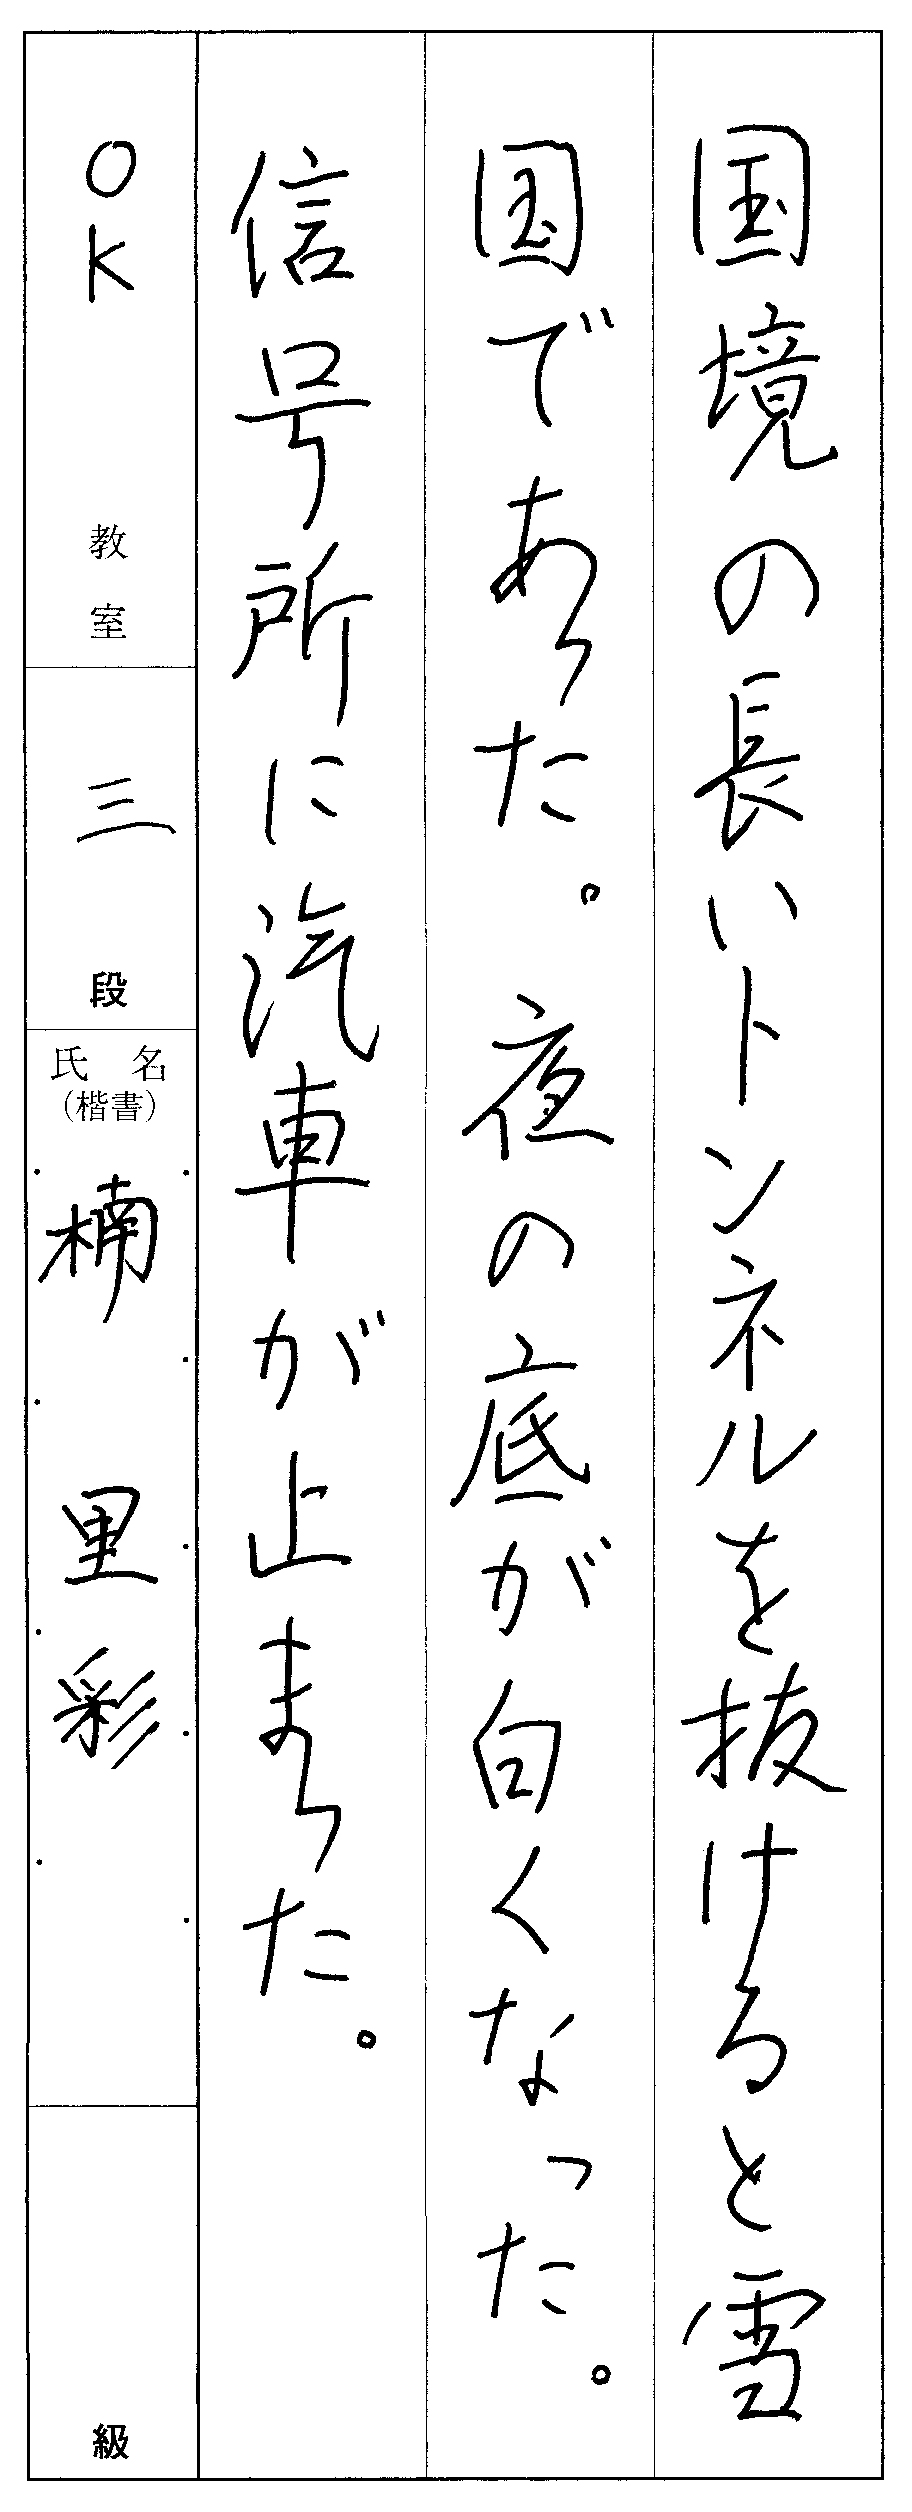 国境の長いトンネルを抜けると雪
国であった。夜の底が白くなった。
信号所に汽車が止まった。
OK 教室
三 段
氏名
(楷書)
楠 里彩
級